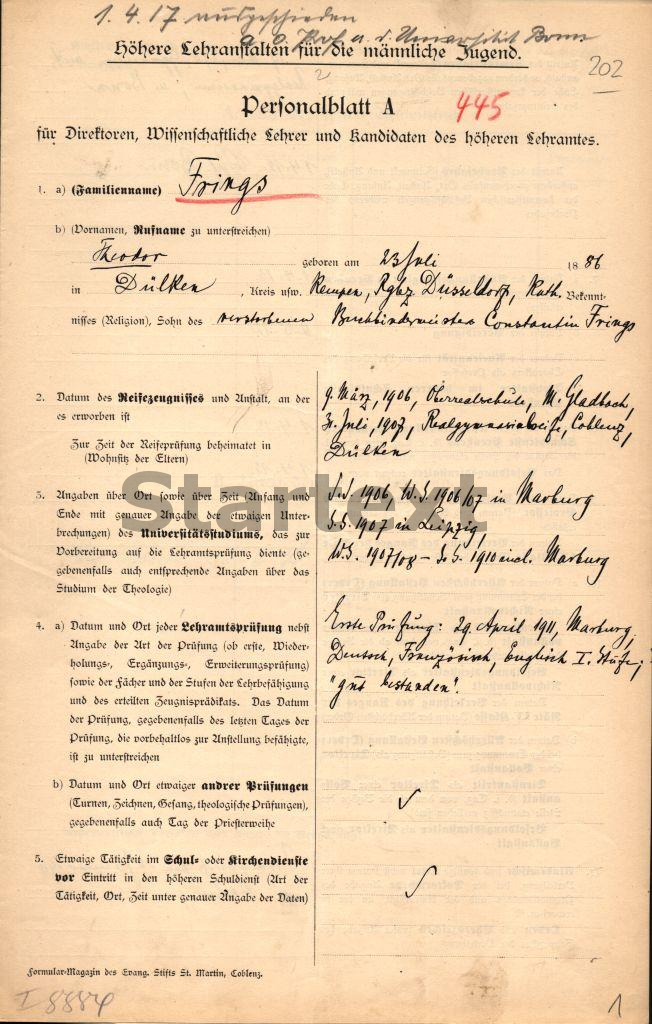 1. 4. 17 ausgeschieden
a. o. Prof. a. d. Universität Bonn
Höhere Lehranstalten für die männliche Jugend.
202
2
Personalblatt A
445
für Direktoren, Wissenschaftliche Lehrer und Kandidaten des höheren Lehramtes.
1. a) (Familienname) Frings
b) (Vornamen, Rufname zu unterstreichen)
Theodor geboren am 23 Juli 1886
in Dülken, Kreis usw. Kempen, Rgbz Düsseldorf, Kath. Bekennt-
nisses (Religion), Sohn des verstorbenen Buchbindermeisters Constantin Frings
2. Datum des Reifezeugnisses und Anstalt, an der
es erworben ist
Zur Zeit der Reifeprüfung beheimatet in
(Wohnsitz der Eltern)
9. März, 1906, Oberrealschule, M. Gladbach,
31. Juli, 1907, Realgymnasialreife, Coblenz,
Dülken
Startext
3. Angaben über Ort sowie über Zeit (Anfang und
Ende mit genauer Angabe der etwaigen Unter-
brechungen) des Universitätsstudiums, das zur
Vorbereitung auf die Lehramtsprüfung diente (ge-
gebenenfalls auch entsprechende Angaben über das
Studium der Theologie)
S.S. 1906, W.S. 1906/07 in Marburg
S.S. 1907 in Leipzig,
W.S. 1907/08 – S.S. 1910 incl. Marburg
4. a) Datum und Ort jeder Lehramtsprüfung nebst
Angabe der Art der Prüfung (ob erste, Wieder-
holungs-, Ergänzungs-, Erweiterungsprüfung)
sowie der Fächer und der Stufen der Lehrbefähigung
und des erteilten Zeugnisprädikats. Das Datum
der Prüfung, gegebenenfalls des letzten Tages der
Prüfung, die vorbehaltlos zur Anstellung befähigte,
ist zu unterstreichen
Erste Prüfung: 29. April 1911, Marburg,
Deutsch, Französisch, Englisch I. Stufe;
"gut bestanden".
b) Datum und Ort etwaiger andrer Prüfungen
(Turnen, Zeichnen, Gesang, theologische Prüfungen),
gegebenenfalls auch Tag der Priesterweihe
5. Etwaige Tätigkeit im Schul- oder Kirchendienste
vor Eintritt in den höheren Schuldienst (Art der
Tätigkeit, Ort, Zeit unter genauer Angabe der Daten)
Formular-Magazin des Evang. Stifts St. Martin, Coblenz.
I 8884
1